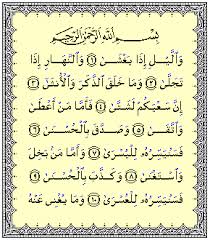 بِسْمِ ٱللَّهِ ٱلرَّحْمَٰنِ ٱلرَّحِيمِ
وَٱلَّيْلِ إِذَا يَغْشَىٰ ١ وَٱلنَّهَارِ إِذَا
تَجَلَّىٰ ٢ وَمَا خَلَقَ ٱلذَّكَرَ وَٱلْأُنثَىٰ ٣
إِنَّ سَعْيَكُمْ لَشَتَّىٰ ٤ فَأَمَّا مَنْ أَعْطَىٰ
وَٱتَّقَىٰ ٥ وَصَدَّقَ بِٱلْحُسْنَىٰ ٦
فَسَنُيَسِّرُهُۥ لِلْيُسْرَىٰ ٧ وَأَمَّا مَنۢ بَخِلَ
وَٱسْتَغْنَىٰ ٨ وَكَذَّبَ بِٱلْحُسْنَىٰ ٩
فَسَنُيَسِّرُهُۥ لِلْعُسْرَىٰ ١٠ وَمَا يُغْنِى عَنْهُ